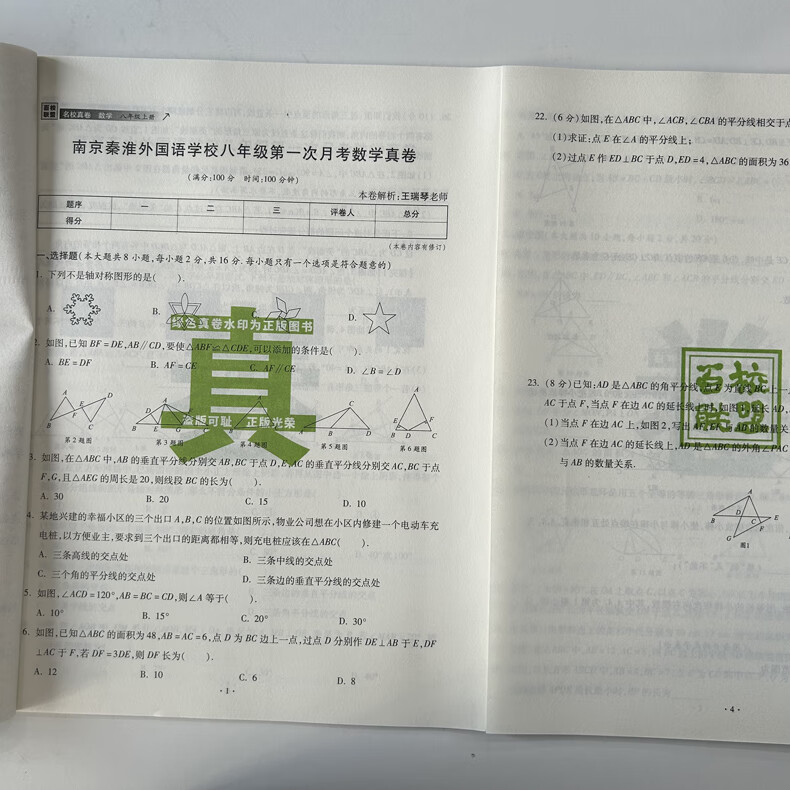 百校联盟
名校真卷 数学 八年级上册
南京秦淮外国语学校八年级第一次月考数学真卷
(满分:100分 时间:100分钟)
本卷解析:王瑞琴老师
题序 一 二 三 评卷人 总分
得分
(本卷内容有修订)
一、选择题(本大题共8小题,每小题2分,共16分.每小题只有一个选项是符合题意的)
1. 下列不是轴对称图形的是( ).
A. B. C. D.
绿色真卷水印为正版图书
真
盗版可耻 正版光荣
2. 如图,已知BF=DE,AB∥CD,要使△ABF≌△CDE,可以添加的条件是( ).
A. BE=DF B. AF=CE C. AF∥CE D. ∠B=∠D
第2题图 第3题图 第4题图 第5题图 第6题图
3. 如图,在△ABC中,AB的垂直平分线分别交AB,BC于点D,E,AC的垂直平分线分别交AC,BC于点
F,G,且△AEG的周长是20,则线段BC的长为( ).
A. 30 B. 20 C. 15 D. 10
4. 某地兴建的幸福小区的三个出口A,B,C的位置如图所示,物业公司想在小区内修建一个电动车充
电桩,以方便业主,要求到三个出口的距离都相等,则充电桩应该在△ABC( ).
A. 三条高线的交点处 B. 三条中线的交点处
C. 三个角的平分线的交点处 D. 三条边的垂直平分线的交点处
5. 如图,∠ACD=120°,AB=BC=CD,则∠A等于( ).
A. 10° B. 15° C. 20° D. 30°
6. 如图,已知△ABC的面积为48,AB=AC=6,点D为BC边上一点,过点D分别作DE⊥AB于E,DF
⊥AC于F,若DF=3DE,则DF长为( ).
A. 12 B. 10 C. 6 D. 8
·1·
22. (6分)如图,在△ABC中,∠ACB,∠CBA的平分线相交于点
(1)求证:点E在∠A的平分线上;
(2)过点E作ED⊥BC于点D,ED=4,△ABC的面积为36
名校联盟
23. (8分)已知:AD是△ABC的角平分线,点E为直线BC上一点
AC于点F,当点F在边AC的延长线上时,如图
(1)当点F在边AC上,如图2,写出
(2)当点F在边AC的延长线上,AD是△ABC的外角∠PAC
与AB的数量关系.
A
B D C E
F
G
图1
·4·